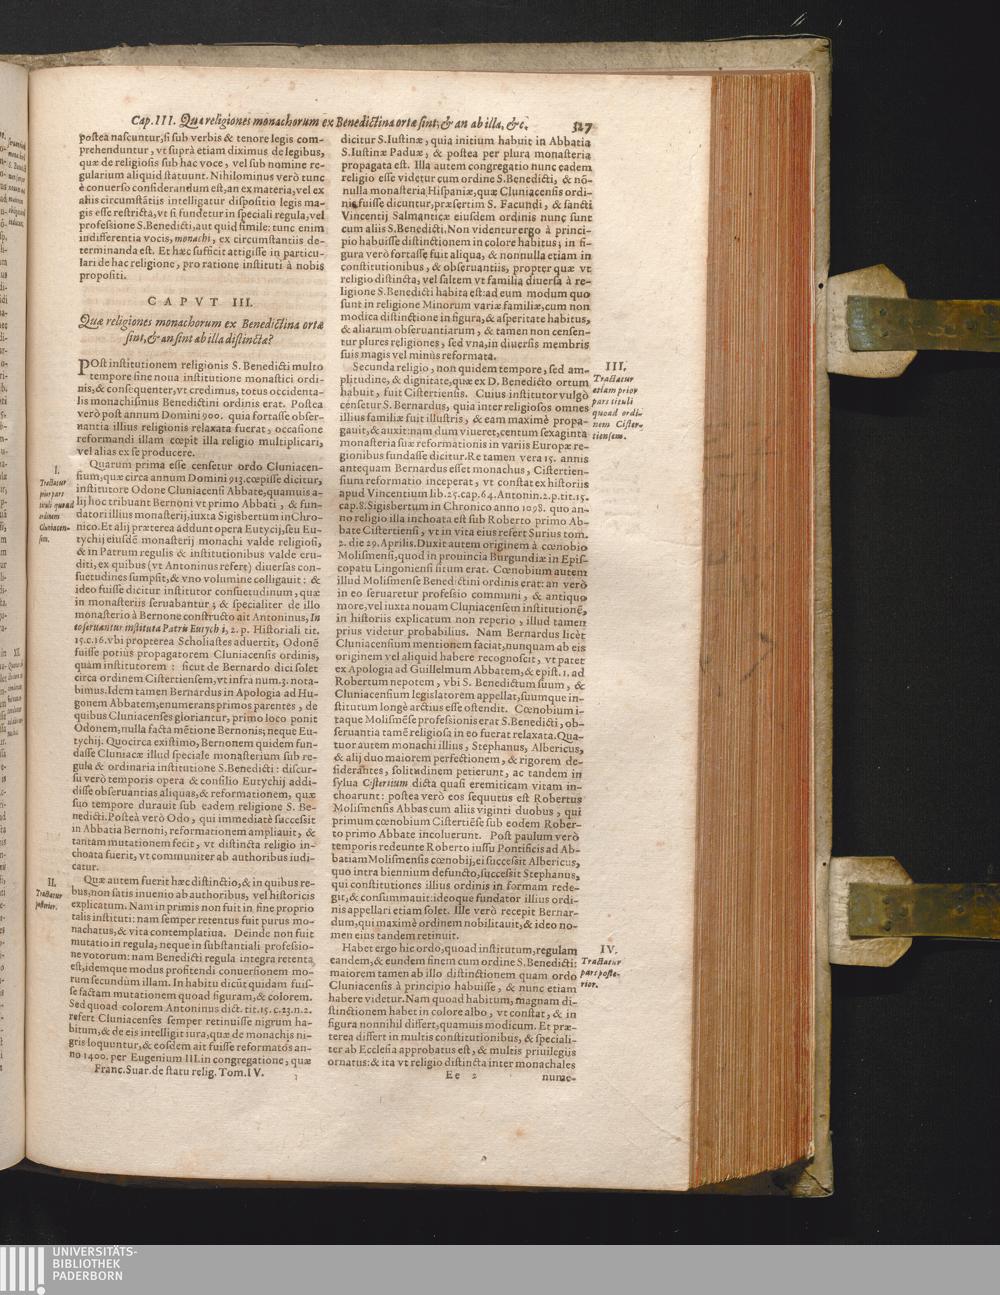 Cap. III. Quæ religiones monachorum ex Benedictina ortæ sint, & an ab illa, &c. 527
postea nascuntur, si sub verbis & tenore legis com-
prehenduntur, vt suprà etiam diximus de legibus,
quæ de religiosis sub hac voce, vel sub nomine re-
gularium aliquid statuunt. Nihilominus verò tunc
è conuerso considerandum est, an ex materia, vel ex
aliis circumstãtiis intelligatur dispositio legis ma-
gis esse restricta, vt si fundetur in speciali regula, vel
professione S. Benedicti, aut quid simile: tunc enim
indifferentia vocis, monachi, ex circumstantiis de-
terminanda est. Et hæc sufficit attigisse in particu-
lari de hac religione, pro ratione instituti à nobis
propositi.
CAPVT III.
Quæ religiones monachorum ex Benedictina ortæ
sint, & an sint ab illa distinctæ?
POst institutionem religionis S. Benedicti multo
tempore sine noua institutione monastici ordi-
nis, & consequenter, vt credimus, totus occidenta-
lis monachismus Benedictini ordinis erat. Postea
verò post annum Domini 900. quia fortasse obser-
uantia illius religionis relaxata fuerat, occasione
reformandi illam cœpit illa religio multiplicari,
vel alias ex se producere.
I.
Tractatur
prior pars
tituli quoad
ordinem
Cluniacen-
sem.
Quarum prima esse censetur ordo Cluniacen-
sium, quæ circa annum Domini 913. cœpisse dicitur,
institutore Odone Cluniacensi Abbate, quamuis a-
lij hoc tribuant Bernoni vt primo Abbati, & fun-
datori illius monasterij, iuxta Sigisbertum in Chro-
nico. Et alij præterea addunt opera Eutycij, seu Eu-
tychij eiusdẽ monasterij monachi valde religiosi,
& in Patrum regulis & institutionibus valde eru-
diti, ex quibus (vt Antoninus refert) diuersas con-
suetudines sumpsit, & vno volumine colligauit: &
ideo fuisse dicitur institutor consuetudinum, quæ
in monasteriis seruabantur; & specialiter de illo
monasterio à Bernone constructo ait Antoninus, In
eo seruantur instituta Patris Eutychij, 2. p. Historiali tit.
15. c. 16. vbi propterea Scholiastes aduertit, Odonẽ
fuisse potius propagatorem Cluniacensis ordinis,
quàm institutorem: sicut de Bernardo dici solet
circa ordinem Cistertiensem, vt infra num. 3. nota-
bimus. Idem tamen Bernardus in Apologia ad Hu-
gonem Abbatem, enumerans primos parentes, de
quibus Cluniacenses gloriantur, primo loco ponit
Odonem, nulla facta mẽtione Bernonis; neque Eu-
tychij. Quocirca existimo, Bernonem quidem fun-
dasse Cluniacæ illud speciale monasterium sub re-
gula & ordinaria institutione S. Benedicti: discur-
su verò temporis opera & consilio Eutychij addi-
disse obseruantias aliquas, & reformationem, quæ
suo tempore durauit sub eadem religione S. Be-
nedicti. Posteà verò Odo, qui immediatè successit
in Abbatia Bernoni, reformationem ampliauit, &
tantam mutationem fecit, vt distincta religio in-
choata fuerit, vt communiter ab authoribus iudi-
catur.
II.
Tractatur
posterior.
Quæ autem fuerit hæc distinctio, & in quibus re-
bus, non satis inuenio ab authoribus, vel historicis
explicatum. Nam in primis non fuit in fine proprio
talis instituti: nam semper retentus fuit purus mo-
nachatus, & vita contemplatiua. Deinde non fuit
mutatio in regula, neque in substantiali professio-
ne votorum: nam Benedicti regula integra retenta
est, idemque modus profitendi conuersionem mo-
rum secundum illam. In habitu dicũt quidam fuis-
se factam mutationem quoad figuram, & colorem.
Sed quoad colorem Antoninus dict. tit. 15. c. 23. n. 2.
refert Cluniacenses semper retinuisse nigrum ha-
bitum, & de eis intelligit iura, quæ de monachis ni-
gris loquuntur, & eosdem ait fuisse reformatos an-
no 1400. per Eugenium III. in congregatione, quæ
Franc. Suar. de statu relig. Tom. IV.
dicitur S. Iustinæ, quia initium habuit in Abbatia
S. Iustinæ Paduæ, & postea per plura monasteria
propagata est. Illa autem congregatio nunc eadem
religio esse videtur cum ordine S. Benedicti, & nõ-
nulla monasteria Hispaniæ, quæ Cluniacensis ordi-
nis fuisse dicuntur, præsertim S. Facundi, & sancti
Vincentij Salmanticæ eiusdem ordinis nunc sunt
cum aliis S. Benedicti. Non videntur ergo à princi-
pio habuisse distinctionem in colore habitus; in fi-
gura verò fortasse fuit aliqua, & nonnulla etiam in
constitutionibus, & obseruantiis, propter quæ vt
religio distincta, vel saltem vt familia diuersa à re-
ligione S. Benedicti habita est: ad eum modum quo
sunt in religione Minorum variæ familiæ, cum non
modica distinctione in figura, & asperitate habitus,
& aliarum obseruantiarum, & tamen non censen-
tur plures religiones, sed vna, in diuersis membris
suis magis vel minùs reformata.
III.
Tractatur
etiam prior
pars tituli
quoad ordi-
nem Cister-
tiensem.
Secunda religio, non quidem tempore, sed am-
plitudine, & dignitate, quæ ex D. Benedicto ortum
habuit, fuit Cistertiensis. Cuius institutor vulgò
censetur S. Bernardus, quia inter religiosos omnes
illius familiæ fuit illustris, & eam maximè propa-
gauit, & auxit: nam dum viueret, centum sexaginta
monasteria suæ reformationis in variis Europæ re-
gionibus fundasse dicitur. Re tamen vera 15. annis
antequam Bernardus esset monachus, Cistertien-
sium reformatio inceperat, vt constat ex historiis
apud Vincentium lib. 25. cap. 64. Antonin. 2. p. tit. 15.
cap. 8. Sigisbertum in Chronico anno 1098. quo an-
no religio illa inchoata est sub Roberto primo Ab-
bate Cistertiensi, vt in vita eius refert Surius tom.
2. die 29. Aprilis. Duxit autem originem à cœnobio
Molismensi, quod in prouincia Burgundiæ in Epis-
copatu Lingoniensi situm erat. Cœnobium autem
illud Molismense Benedictini ordinis erat: an verò
in eo seruaretur professio communi, & antiquo
more, vel iuxta nouam Cluniacensem institutionẽ,
in historiis explicatum non reperio, illud tamen
prius videtur probabilius. Nam Bernardus licèt
Cluniacensium mentionem faciat, nunquam ab eis
originem vel aliquid habere recognoscit, vt patet
ex Apologia ad Guillelmum Abbatem, & epist. 1. ad
Robertum nepotem, vbi S. Benedictum suum, &
Cluniacensium legislatorem appellat, suumque in-
stitutum longè arctius esse ostendit. Cœnobium i-
taque Molismẽse professionis erat S. Benedicti, ob-
seruantia tamẽ religiosa in eo fuerat relaxata. Qua-
tuor autem monachi illius, Stephanus, Albericus,
& alij duo maiorem perfectionem, & rigorem de-
siderantes, solitudinem petierunt, ac tandem in
sylua Cistersium dicta quasi eremiticam vitam in-
choarunt: postea verò eos sequutus est Robertus
Molismensis Abbas cum aliis viginti duobus, qui
primum cœnobium Cistertiẽse sub eodem Rober-
to primo Abbate incoluerunt. Post paulum verò
temporis redeunte Roberto iussu Pontificis ad Ab-
batiam Molismensis cœnobij, ei successit Albericus,
quo intra biennium defuncto, successit Stephanus,
qui constitutiones illius ordinis in formam rede-
git, & consummauit: ideoque fundator illius ordi-
nis appellari etiam solet. Ille verò recepit Bernar-
dum, qui maximè ordinem nobilitauit, & ideo no-
men eius tandem retinuit.
IV.
Tractatur
pars poste-
rior.
Habet ergo hic ordo, quoad institutum, regulam
eandem, & eundem finem cum ordine S. Benedicti:
maiorem tamen ab illo distinctionem quam ordo
Cluniacensis à principio habuisse, & nunc etiam
habere videtur. Nam quoad habitum, magnam di-
stinctionem habet in colore albo, vt constat, & in
figura nonnihil differt, quamuis modicum. Et præ-
terea differt in multis constitutionibus, & speciali-
ter ab Ecclesia approbatus est, & multis priuilegiis
ornatus: & ita vt religio distincta inter monachales
Ee 2 nume-
UNIVERSITÄTS-
BIBLIOTHEK
PADERBORN